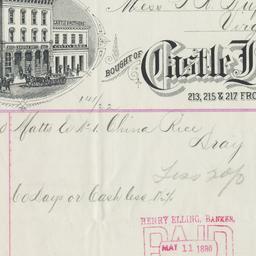 CASTLE BROTHERS
Mess
Virg
BOUGHT OF
Castle
213, 215 & 217 FRO
141/22
Matts Ex No 1 China Rice
Dray
Less 20/o
60 Days or Cash less 1%
HENRY ELLING, BANKER,
PAID
MAY 11 1886